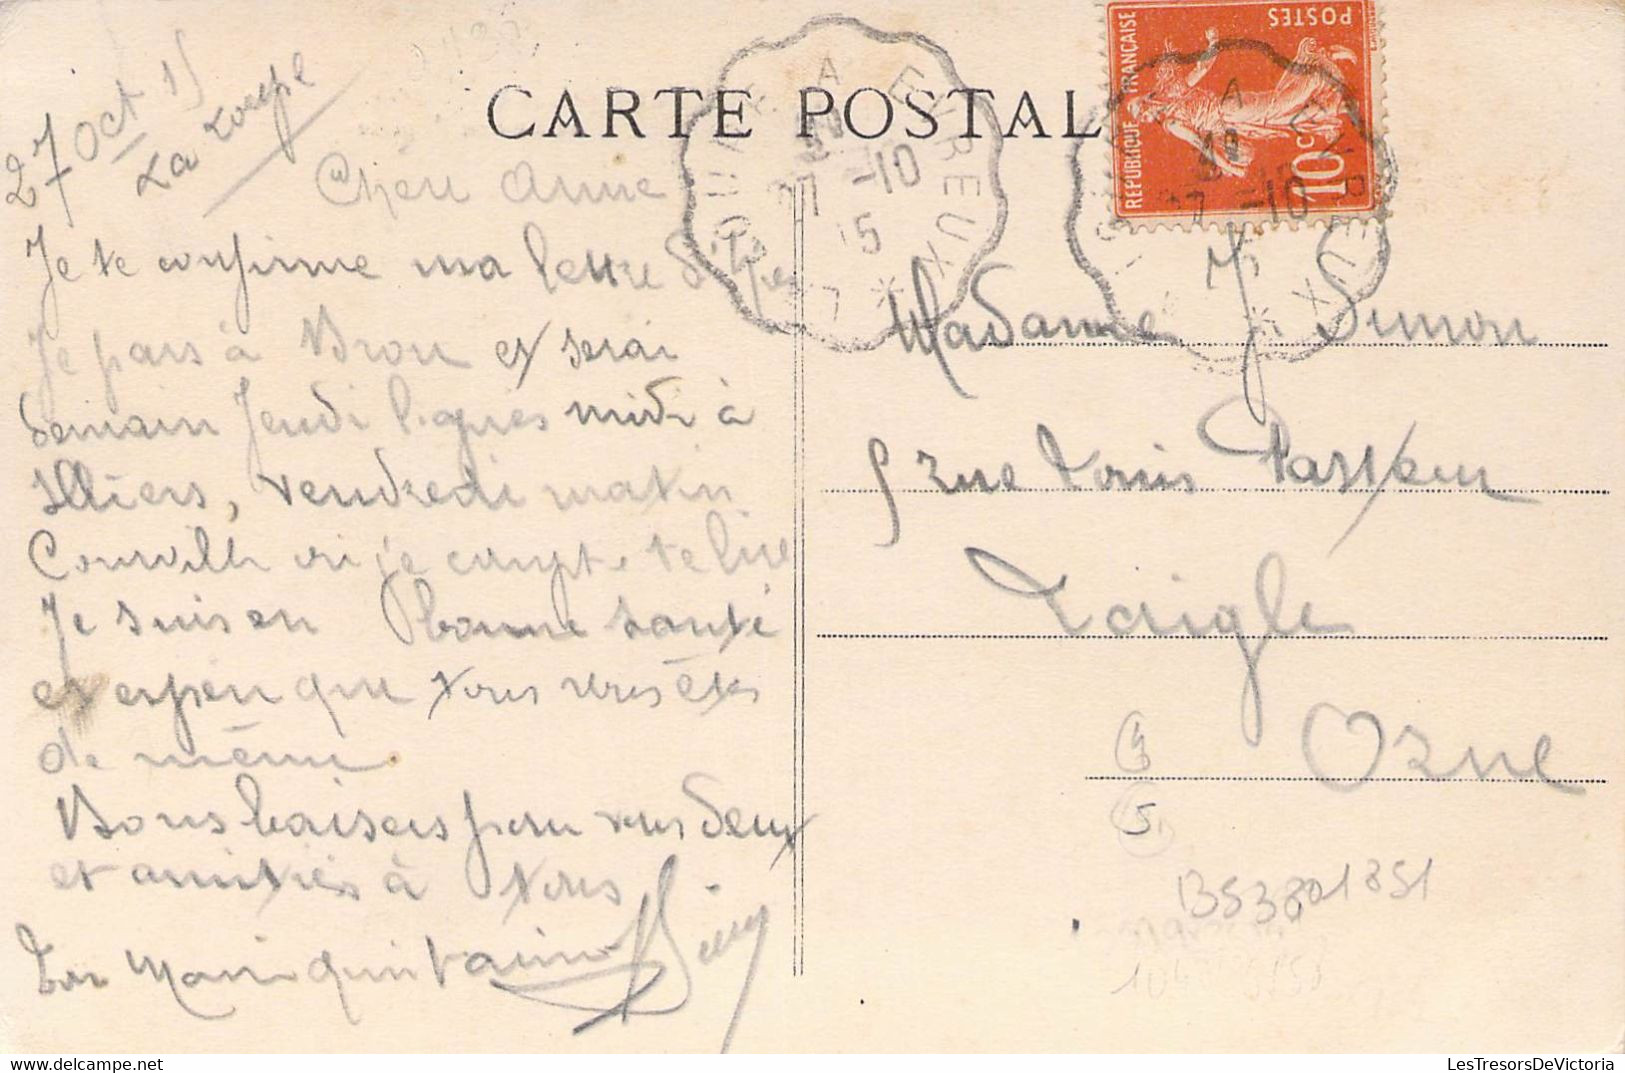 CARTE POSTALE
27 Oct 15
La Loupe
RÉPUBLIQUE FRANÇAISE
POSTES
10 c
A EVREUX
27 -10
15
Chère Anne
Je te confirme ma lettre d'hier
Je pars à Brou et serai
demain Jeudi l'après midi à
Illiers, vendredi matin
Courville où je compte te lire
Je suis en bonne santé
et espère que vous deux êtes
de même.
Bons baisers pour vous deux
et amitiés à tous
Ton Mari qui t'aime
Madame J Simon
5 rue Louis Pasteur
Laigle
Orne
5
BS3801851
LesTresorsDeVictoria